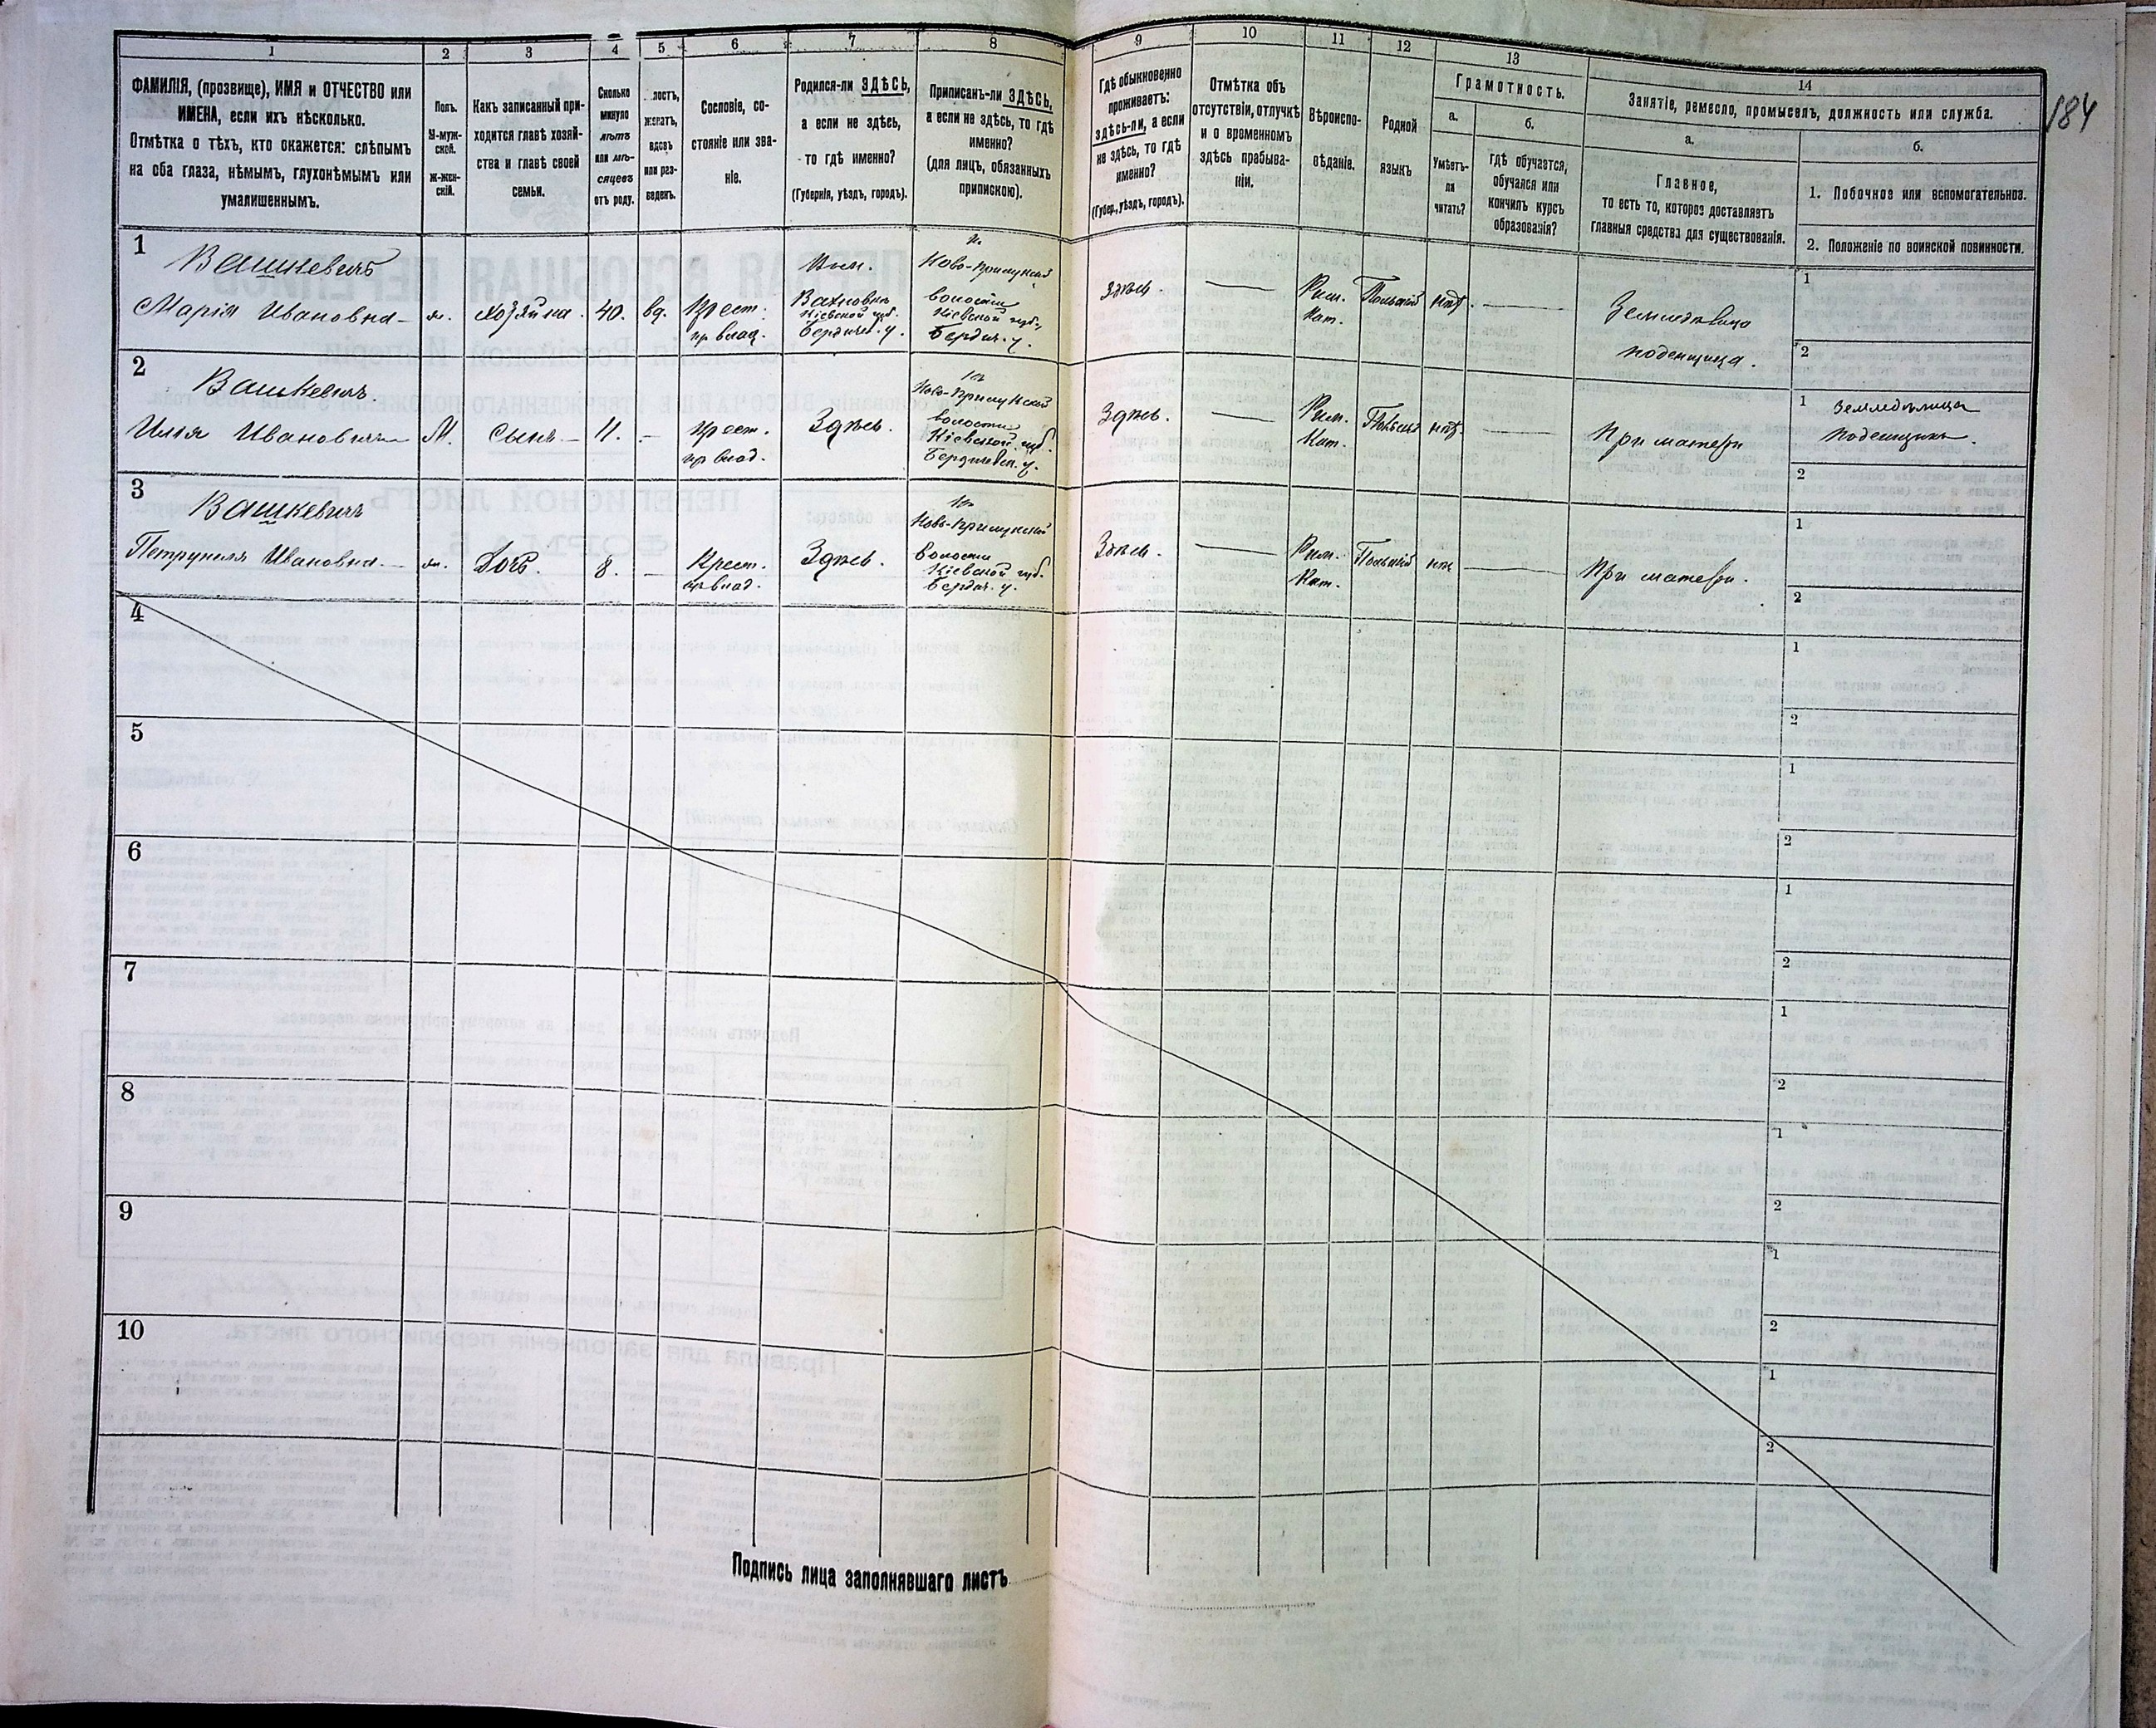 1
2
3
4
5
6
7
8
9
10
11
12
13
14
184
ФАМИЛІЯ, (прозвище), ИМЯ и ОТЧЕСТВО или
ИМЕНА, если ихъ нѣсколько.
Отмѣтка о тѣхъ, кто окажется: слѣпымъ
на оба глаза, нѣмымъ, глухонѣмымъ или
умалишеннымъ.
Полъ.
М-муж-
ской.
Ж-жен-
скій.
Какъ записанный при-
ходится главѣ хозяй-
ства и главѣ своей
семьи.
Сколько
минуло
лѣтъ
или мѣ-
сяцевъ
отъ роду.
лостъ,
женатъ,
вдовъ
или раз-
веденъ.
Сословіе, со-
стояніе или зва-
ніе.
Родился-ли ЗДѢСЬ,
а если не здѣсь,
то гдѣ именно?
(Губернія, уѣздъ, городъ).
Приписанъ-ли ЗДѢСЬ,
а если не здѣсь, то гдѣ
именно?
(для лицъ, обязанныхъ
припискою).
Гдѣ обыкновенно
проживаетъ:
здѣсь-ли, а если
не здѣсь, то гдѣ
именно?
(Губер., уѣздъ, городъ).
Отмѣтка объ
отсутствіи, отлучкѣ
и о временномъ
здѣсь пребыва-
ніи.
Вѣроиспо-
вѣданіе.
Родной
языкъ
Грамотность.
а.
Умѣетъ-
ли
читать?
б.
Гдѣ обучается,
обучался или
кончилъ курсъ
образованія?
Занятіе, ремесло, промыселъ, должность или служба.
а.
Главное,
то есть то, которое доставляетъ
главныя средства для существованія.
б.
1. Побочное или вспомогательное.
2. Положеніе по воинской повинности.
1
Вашкевичъ
Марія Ивановна
ж.
хозяйка.
40.
вд.
Крест.
пр влад.
Кіевской губ.
Бердичев. у.
Ново-Прилуцкой
волости
Кіевской губ.,
Бердич. у.
Здѣсь.
Рим.
Кат.
Польскій
нѣт.
поденщица.
1
2
2
Вашкевичъ.
Ивановичъ
М.
сынъ.
11.
Крест.
пр влад.
Здѣсь.
Ново-Прилуцкой
волости
Кіевской губ.
Бердичевск. у.
Здѣсь.
Рим.
Кат.
Польскій
нѣт.
При матери
1
2
3
Вашкевичъ
Ивановна
ж.
Дочь.
8.
Крест.
пр влад.
Здѣсь.
Ново-Прилуцкой
волости
Кіевской губ.
Бердич. у.
Здѣсь.
Рим.
Кат.
Польскій
При матери.
1
2
4
1
2
5
1
2
6
1
2
7
1
2
8
1
2
9
1
2
10
1
2
Подпись лица заполнявшаго листъ